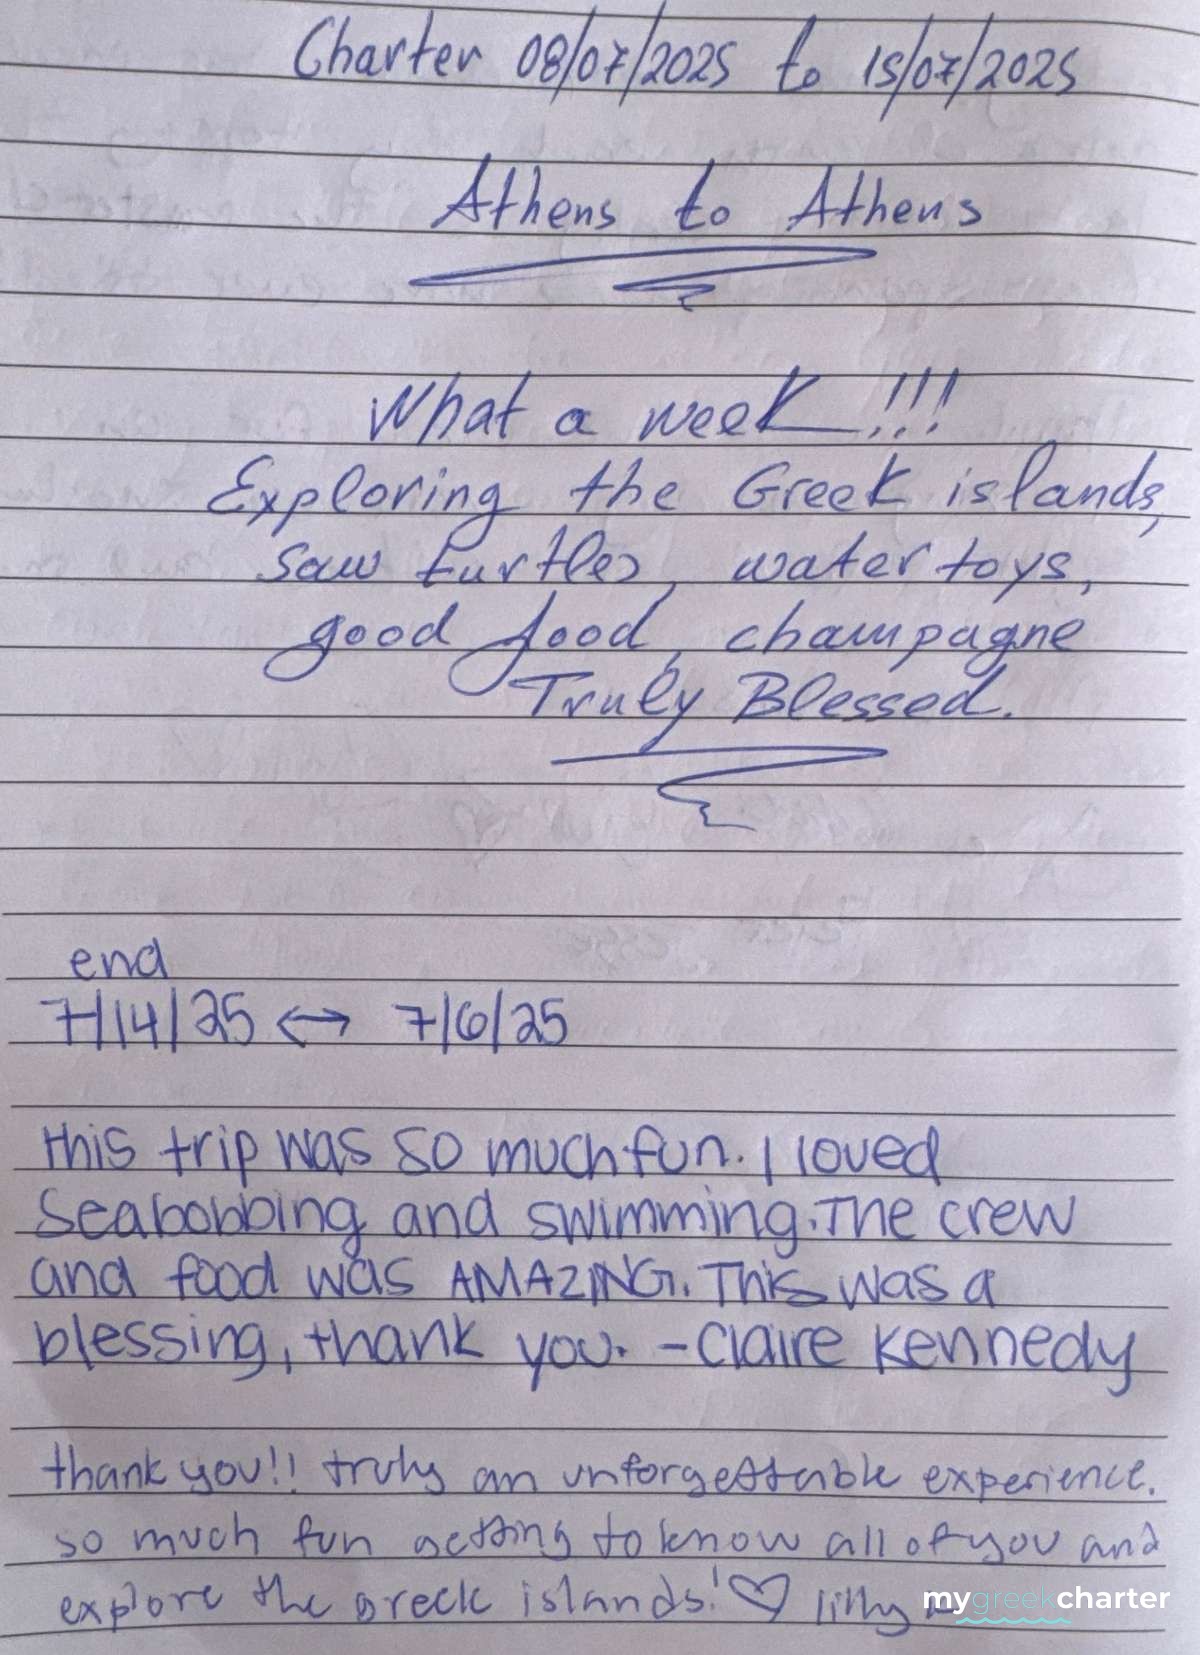 Charter 08/07/2025 to 15/07/2025
Athens to Athens
What a week!!!
Exploring the Greek islands,
saw turtles, water toys,
good food, champagne
Truly Blessed.
end
7/14/25 ↔ 7/6/25
this trip was so much fun. I loved
Seabobbing and swimming. The crew
and food was AMAZING. This was a
blessing, thank you. - Claire Kennedy
thank you!! truly an unforgettable experience.
so much fun getting to know all of you and
explore the greek islands! ♡ lilly
mygreekcharter